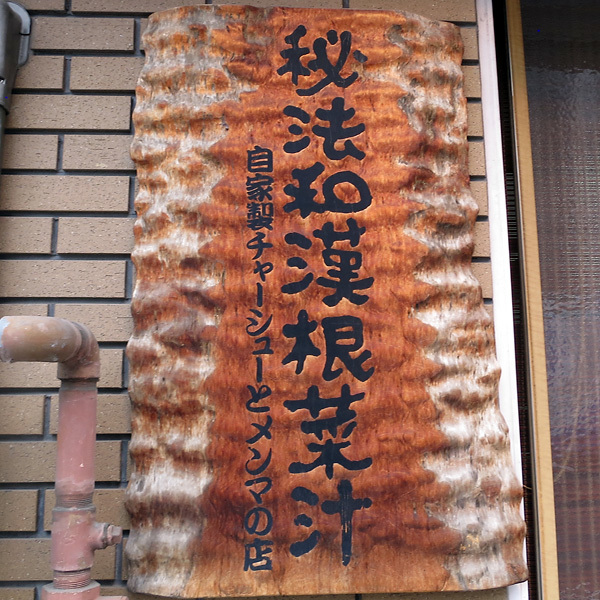 秘法和漢根菜汁
自家製チャーシューとメンマの店